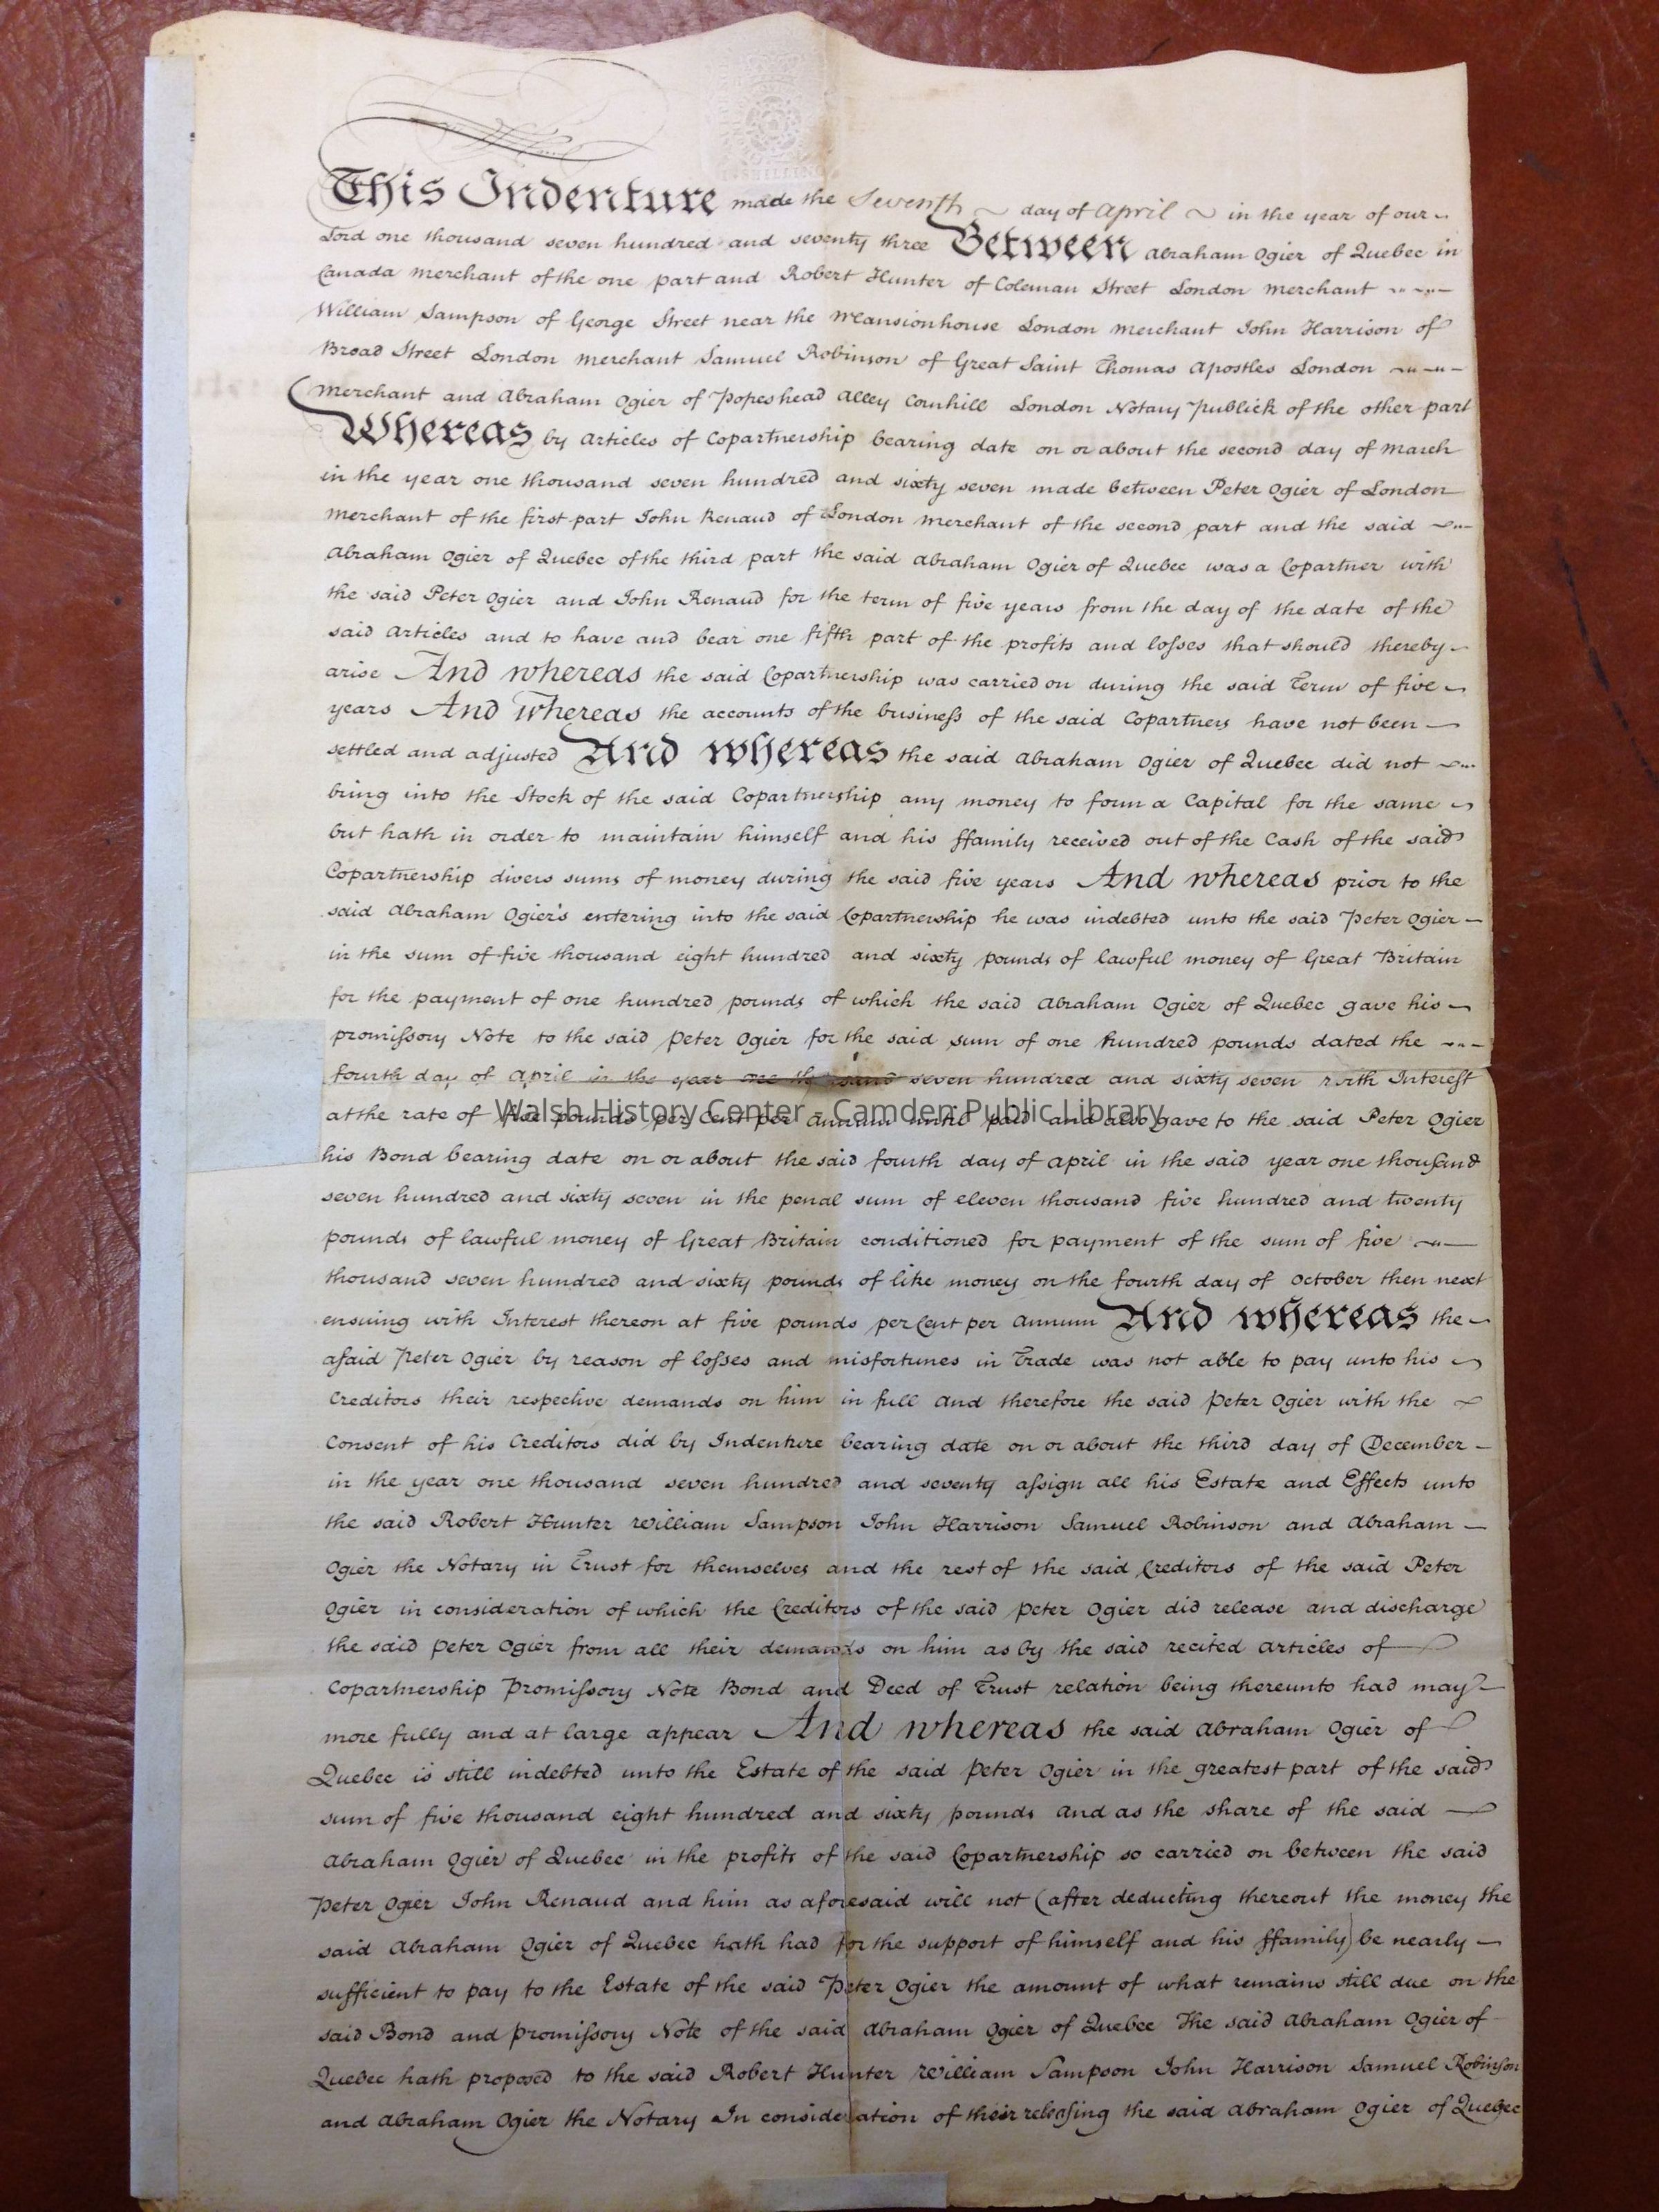 This Indenture made the Seventh day of April in the year of our
Lord one thousand seven hundred and seventy three Between Abraham Ogier of Quebec in
Canada Merchant of the one part and Robert Hunter of Coleman Street London Merchant
William Sampson of George Street near the Mansionhouse London Merchant John Harrison of
Broad Street London Merchant Samuel Robinson of Great Saint Thomas Apostles London
Merchant and Abraham Ogier of Popeshead Alley Cornhill London Notary Publick of the other part
Whereas by Articles of Copartnership bearing date on or about the second day of March
in the year one thousand seven hundred and sixty seven made between Peter Ogier of London
Merchant of the first part John Renaud of London Merchant of the second part and the said
Abraham Ogier of Quebec of the third part the said Abraham Ogier of Quebec was a Copartner with
the said Peter Ogier and John Renaud for the term of five years from the day of the date of the
said Articles and to have and bear one fifth part of the profits and losses that should thereby
arise And whereas the said Copartnership was carried on during the said Term of five
years And Whereas the accounts of the business of the said Copartners have not been
settled and adjusted And whereas the said Abraham Ogier of Quebec did not
bring into the Stock of the said Copartnership any money to form a Capital for the same
but hath in order to maintain himself and his ffamily received out of the Cash of the said
Copartnership divers sums of money during the said five years And whereas prior to the
said Abraham Ogier's entering into the said Copartnership he was indebted unto the said Peter Ogier
in the sum of five thousand eight hundred and sixty pounds of lawful money of Great Britain
for the payment of one hundred pounds of which the said Abraham Ogier of Quebec gave his
promissory Note to the said Peter Ogier for the said sum of one hundred pounds dated the
fourth day of April in the year one thousand seven hundred and sixty seven with Interest
at the rate of five pounds per Cent per Annum until paid and also gave to the said Peter Ogier
Walsh History Center - Camden Public Library
his Bond bearing date on or about the said fourth day of April in the said year one thousand
seven hundred and sixty seven in the penal sum of eleven thousand five hundred and twenty
pounds of lawful money of Great Britain conditioned for payment of the sum of five
thousand seven hundred and sixty pounds of like money on the fourth day of October then next
ensuing with Interest thereon at five pounds per Cent per Annum And whereas the
asaid Peter Ogier by reason of losses and misfortunes in Trade was not able to pay unto his
Creditors their respective demands on him in full And therefore the said Peter Ogier with the
Consent of his Creditors did by Indenture bearing date on or about the third day of December
in the year one thousand seven hundred and seventy assign all his Estate and Effects unto
the said Robert Hunter William Sampson John Harrison Samuel Robinson and Abraham
Ogier the Notary in Trust for themselves and the rest of the said Creditors of the said Peter
Ogier in consideration of which the Creditors of the said Peter Ogier did release and discharge
the said Peter Ogier from all their demands on him as by the said recited Articles of
Copartnership Promissory Note Bond and Deed of Trust relation being thereunto had may
more fully and at large appear And whereas the said Abraham Ogier of
Quebec is still indebted unto the Estate of the said Peter Ogier in the greatest part of the said
sum of five thousand eight hundred and sixty pounds And as the share of the said
Abraham Ogier of Quebec in the profits of the said Copartnership so carried on between the said
Peter Ogier John Renaud and him as aforesaid will not (after deducting thereout the money the
said Abraham Ogier of Quebec hath had for the support of himself and his ffamily) be nearly
sufficient to pay to the Estate of the said Peter Ogier the amount of what remains still due on the
said Bond and Promissory Note of the said Abraham Ogier of Quebec The said Abraham Ogier of
Quebec hath proposed to the said Robert Hunter William Sampson John Harrison Samuel Robinson
and Abraham Ogier the Notary In consideration of their releasing the said Abraham Ogier of Quebec